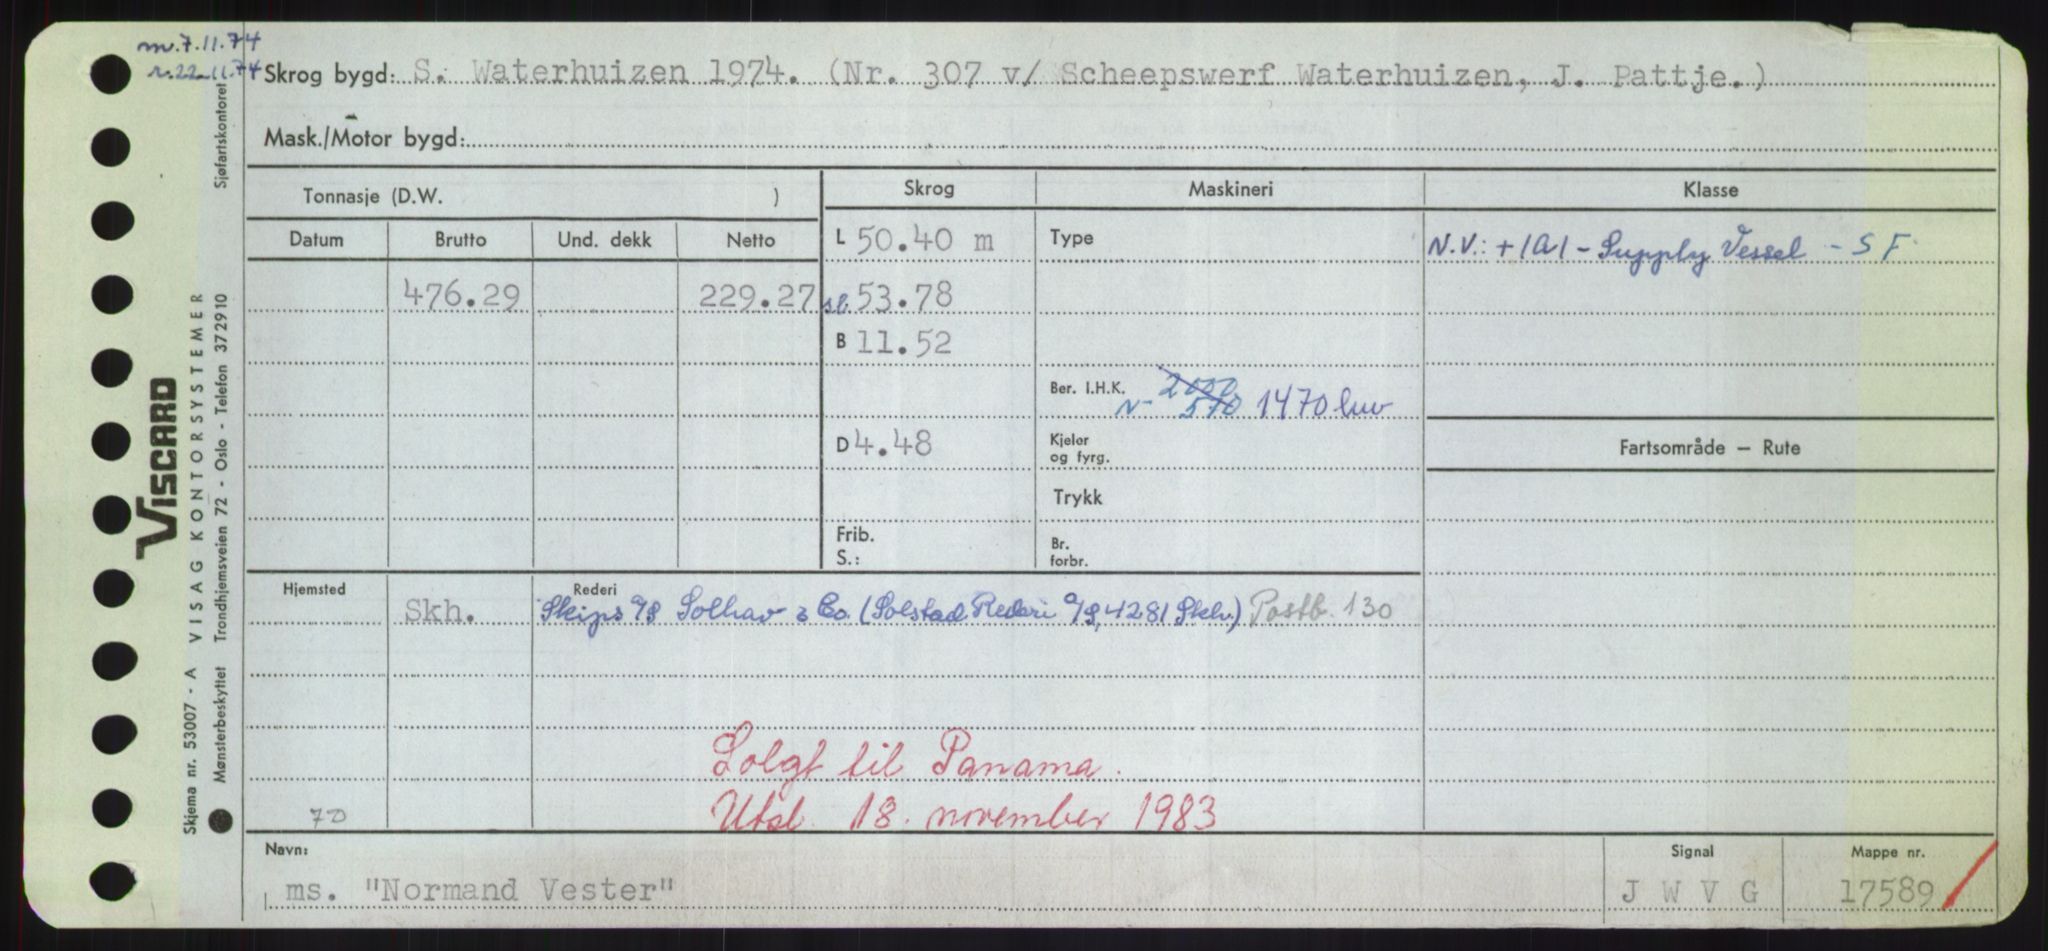 m.7.11.74
r.22.11.74
Skrog bygd: S. Waterhuizen 1974. (Nr. 307 v/ Scheepswerf Waterhuizen, J. Pattje.)
Mask./Motor bygd:
Tonnasje (D.W. )
Skrog
Maskineri
Klasse
Datum Brutto Und. dekk Netto
L 50.40 m
Type
N.V.: + 1A1 - Supply Vessel - S F
476.29 229.27
sl. 53.78
B 11.52
Ber. I.H.K. 2000
N- 570 1470 kw
D 4.48
Kjeler
og fyrg.
Fartsområde — Rute
Trykk
Frib.
S.:
Br.
forbr.
Hjemsted Rederi
Skh. Skips A/S Solhav & Co. (Solstad Rederi A/S, 4281 Skh.) Postb. 130
Solgt til Panama.
70 Utsl. 18. november 1983
Navn: Signal Mappe nr.
ms. "Normand Vester" J W V G 17589
VISCARD
Skjema nr. 53007 - A VISAG KONTORSYSTEMER
Mønsterbeskyttet Trondhjemsveien 72 - Oslo - Telefon 372910 Sjøfartskontoret